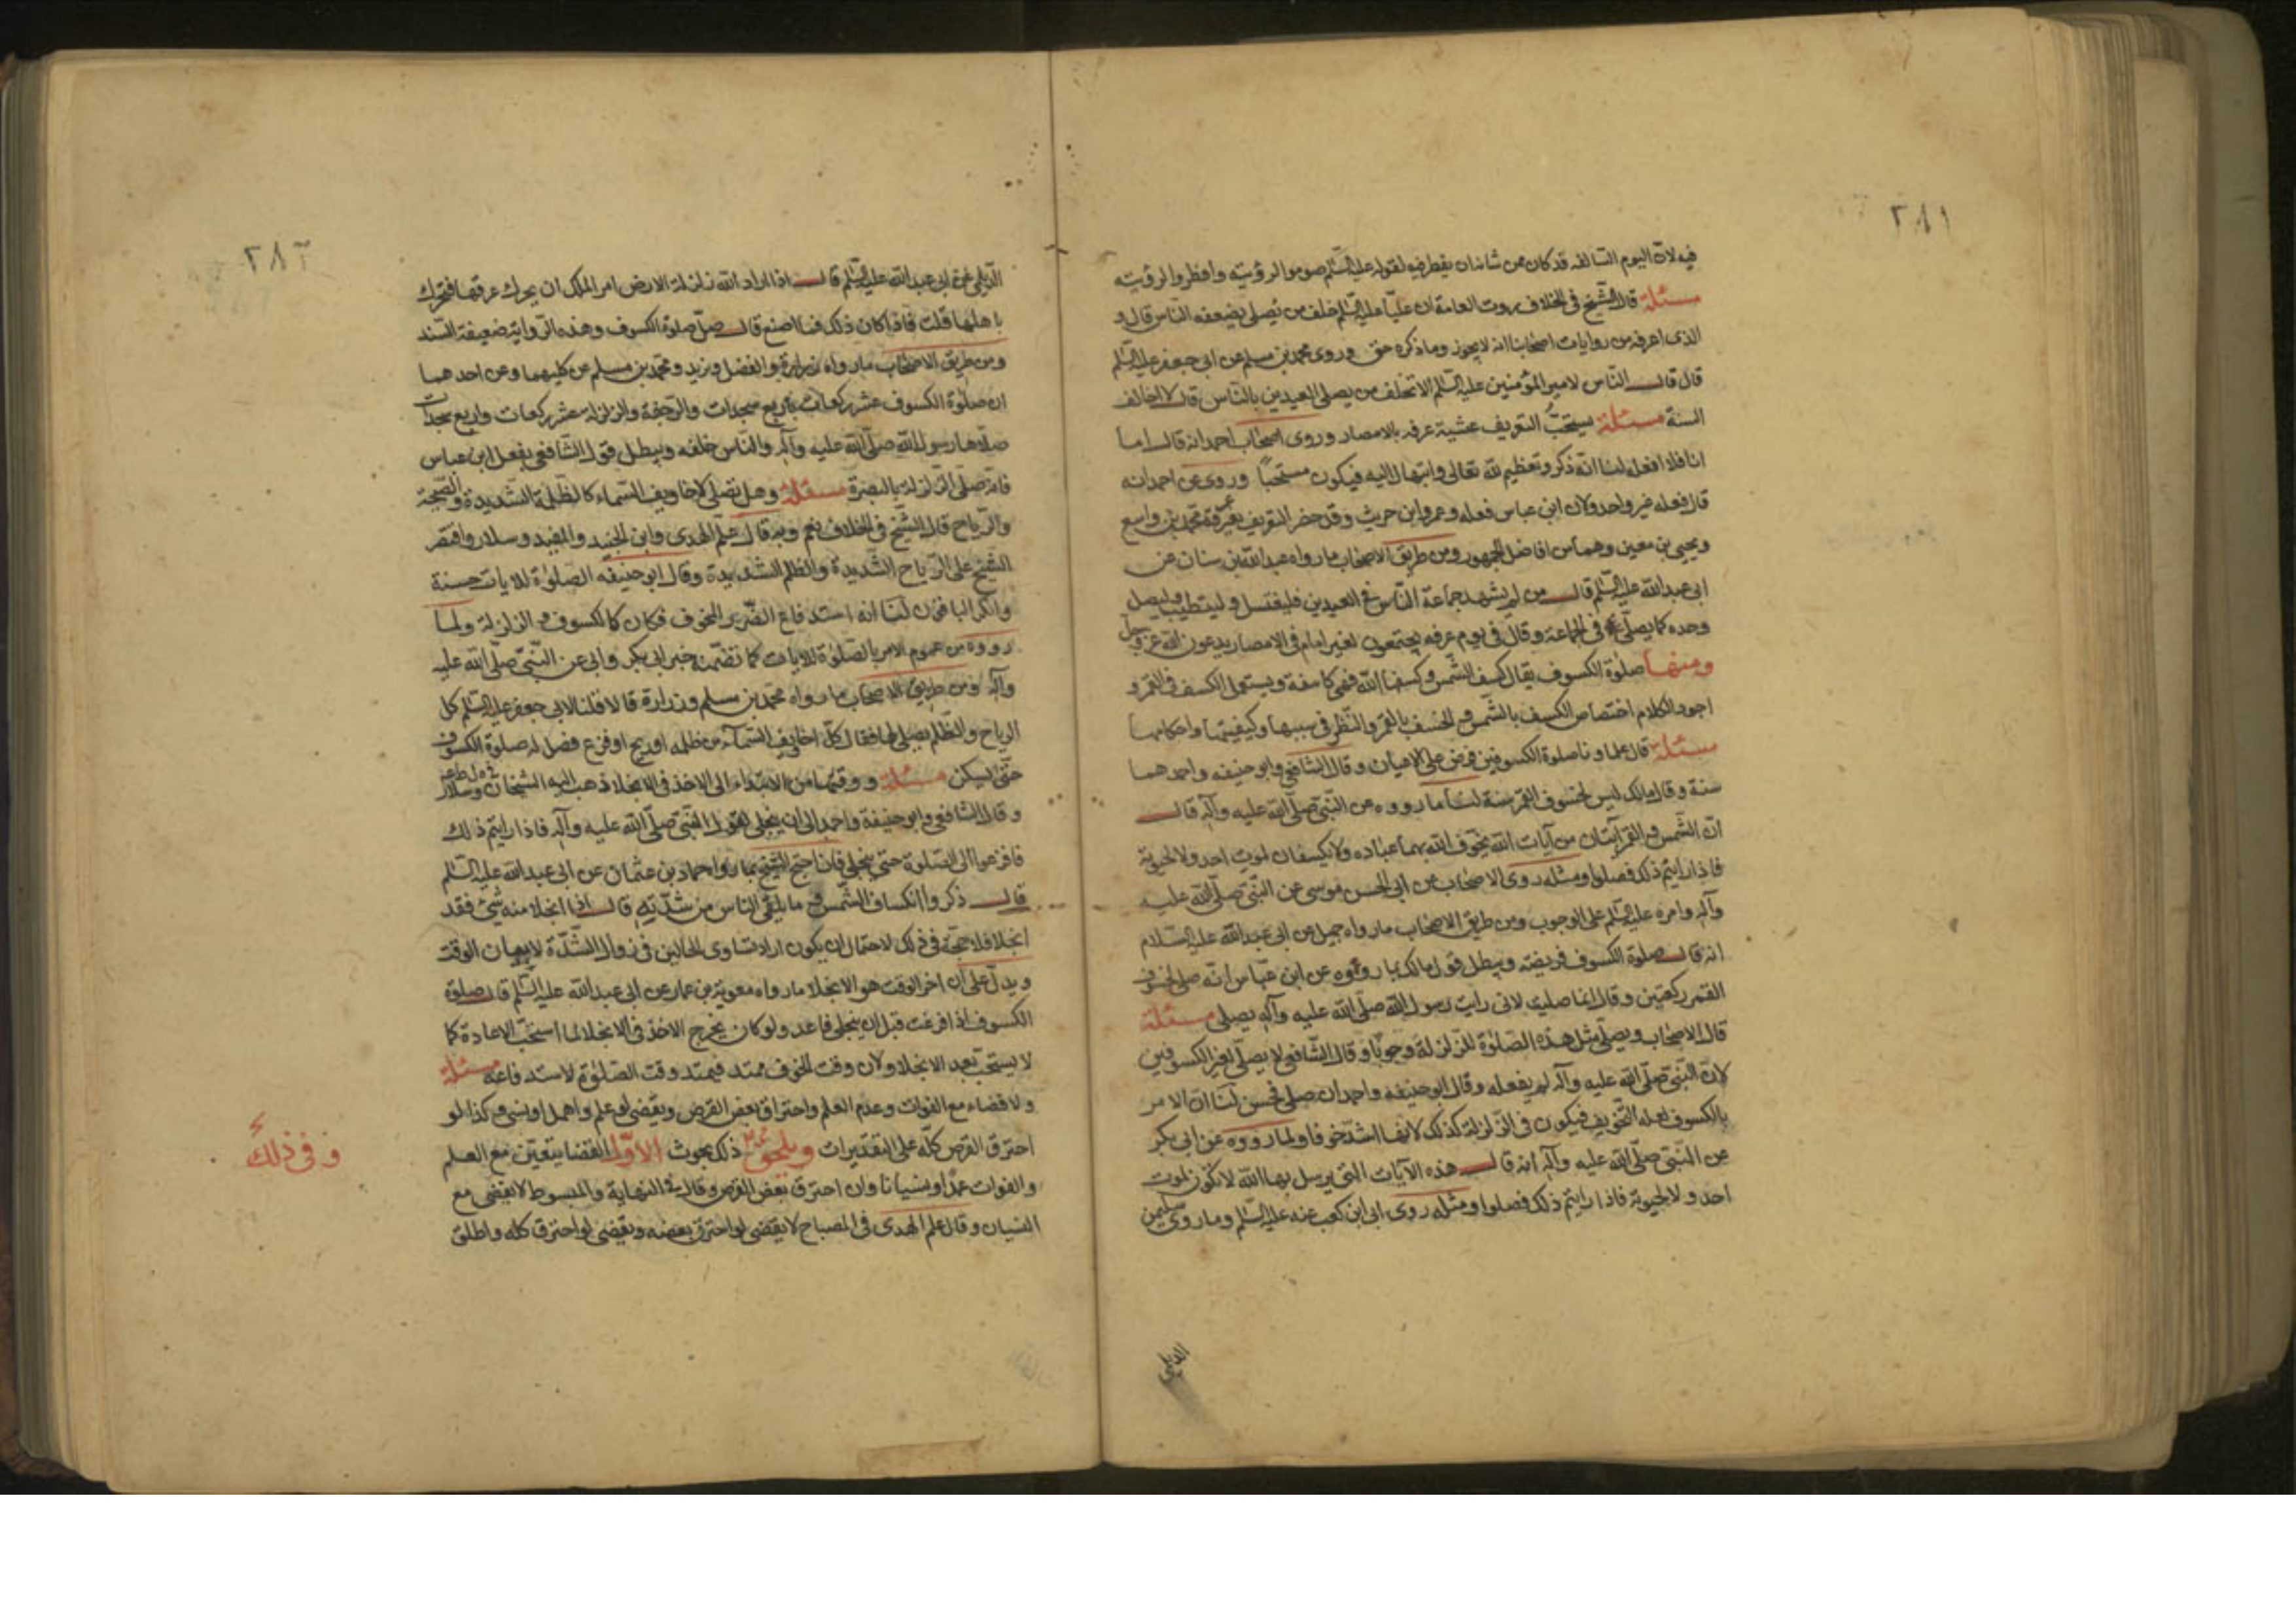 ٢٨١
فيه لان اليوم السالفه قد كان من شانه ان يفطر فيه لقوله عليه السّلم صوموا لرؤيته وافطروا لرؤيته
مسئلة قال الشّيخ فى الخلاف روت العامة ان عليّا عليه السّلم خلف من يُصلى بضعفه النّاس قال و
الذى اعرفه من روايات اصحابنا انه لا يجوز وما ذكره حق وروى محمد بن مسلم عن ابى جعفر عليه السّلم
قال قال النّاس لامير المؤمنين عليه السّلم الا تخلف من يصلى العيدين بالنّاس قال لا اخالف
السنة مسئلة يستحبّ التعريف عشية عرفه بالامصار وروى اصحاب احمد انه قال اما
انا فلا افعله لنا انّه ذكر وتعظيم لله تعالى وابتهال اليه فيكون مستحبّاً وروى عن احمد انه
قال فعله غير واحد ولان ابن عباس فعله وعمرو ابن حريث وقد حضر التعريف بعرفة محمد بن واسع
ويحيى بن معين وهما من افاضل الجمهور ومن طريق الاصحاب ما رواه عبد الله بن سنان عن
ابى عبد الله عليه السّلم قال من لم يشهد جماعة النّاس فى العيدين فليغتسل وليتطيب وليصل
وحده كما يصلّى فى الجماعة وقال فى يوم عرفه يجتمعون لغير امام فى الامصار يدعون الله عز وجل
ومنها صلوة الكسوف يقال كسف الشّمس وكسفها الله فهى كاسفة ويستعمل الكسف فى القمر و
اجود الكلام اختصاص الكسف بالشّمس والخسف بالقمر والنّظر فى سببها وكيفيتها واحكامها
مسئلة قال علماونا صلوة الكسوفين فرض على الاعيان وقال الشافعى وابو حنيفه واحمد هما
سنة وقال مالك ليس لخسوف القمر سنة لنا ما رووه عن النّبى صلّى الله عليه وآله قال
انّ الشّمس والقمر آيتان من آيات الله يخوّف الله بهما عباده ولا يكسفان لموت احد ولا لحيوية
فاذا رايتم ذلك فصلوا ومثله روى الاصحاب عن ابى الحسن موسى عن النّبى صلّى الله عليه
وآله وامره عليه السّلم على الوجوب ومن طريق الاصحاب ما رواه جميل عن ابى عبد الله عليه السّلام
انه قال صلوة الكسوف فريضة ويبطل قول مالك بما رووه عن ابن عبّاس انّه صلى لخسوف
القمر ركعتين وقال انما صليت لانى رايت رسول الله صلّى الله عليه وآله يصلى مسئلة
قال الاصحاب ويصلّى مثل هذه الصّلوة للزلزلة وجوبًا وقال الشّافعى لا يصلّى لغير الكسوفين
لانّ النّبى صلّى الله عليه وآله لم يفعله وقال ابو حنيفه واحمد ان صلى فحسن لنا انّ الامر
بالكسوف لعله التّخويف فيكون فى الزّلزلة كذلك لانها اشدّ خوفا ولما رووه عن ابى بكر
عن النّبى صلّى الله عليه وآله انه قال هذه الآيات التى يرسل بها الله لا تكون لموت
احد ولا لحيوية فاذا رايتم ذلك فصلوا ومثله روى ابى ابن كعب عنه عليه السّلم وما روى سليمن
الديلى
٢٨٢
الدّيلمى عن ابى عبد الله عليه السّلم قال اذا اراد الله زلزلة الارض امر الملك ان يحرك عرقها فتحرك
باهلها قلت فاذا كان ذلك فما اصنع قال صلّ صلوة الكسوف وهذه الرّواية ضعيفة السّند
ومن طريق الاصحاب ما رواه زرارة والفضل وبريد ومحمّد بن مسلم عن كليهما وعن احدهما
ان صلوة الكسوف عشر ركعات باربع سجدات والرّجفة والزلزلة عشر ركعات واربع سجدات
صلاها رسول الله صلّى الله عليه وآله والنّاس خلفه ويبطل قول الشّافعى بفعل ابن عباس
فانّه صلّى الزّلزلة بالبصرة مسئلة وهل تصلى لاخاويف السّماء كالظّلمة الشّديدة والصّيحة
والرّياح قال الشّيخ فى الخلاف نعم وبه قال علم الهدى وابن الجنيد والمفيد وسلار واقتصر
الشّيخ على الرّياح الشّديدة والظلم الشّديدة وقال ابو حنيفه الصلوة للايات حسنة
وانكر الباقون لنا انه استدفاع الضّرر المخوف فكان كالكسوف والزلزلة ولما
رووه من عموم الامر بالصّلوة للايات كما تضمّنه خبر ابى بكر وابى عن النّبى صلّى الله عليه
وآله ومن طريق الاصحاب ما رواه محمّد بن مسلم وزرارة قالا قلنا لابى جعفر عليه السّلم كل
الرياح والظّلم يصلى لها فقال كلّ اخاويف السّماء من ظلمه او ريح او فزع فصل له صلوة الكسوف
حتّى يسكن مسئلة ووقتها من الابتداء الى الاخذ فى الانجلا ذهب اليه الشيخان وسلار
وقال الشافعى وابو حنيفة واحمد الى ان ينجلى لقول النّبى صلّى الله عليه وآله فاذا رايتم ذلك
فافزعوا الى الصّلوة حتى ينجلى فان احتج الشّيخ بما رواه حماد بن عثمان عن ابى عبد الله عليه السّلم
قال ذكروا انكساف الشّمس وما يلقى النّاس من شدّته قال اذا انجلا منه شئ فقد
انجلا فلا حجّة فى ذلك لاحتمال ان يكون اراد تساوى الحالين فى زوال الشّدّة لا بيان الوقت
ويدلّ على ان اخر الوقت هو الانجلا ما رواه معوية بن عمار عن ابى عبد الله عليه السّلم قال صلوة
الكسوف اذا فرغت قبل ان ينجلى فاعد ولو كان يخرج الاخذ فى الانجلا لما استحبّ الاعادة كما
لا يستحبّ بعد الانجلا ولان وقت الخوف ممتد فيمتد وقت الصّلوة لاستدفاعه مسئلة
ولا قضاء مع الفوات وعدم العلم واحتراق بعض القرص ويقضى لو علم واهمل او نسى وكذا لو
احترق القرص كلّه على التقديرات ويلحق ذلك بحوث الاوّل القضا يتعيّن مع العلم
والفوات عمدًا ونسيانا وان احترق بعض القرص وقال فى النهاية والمبسوط لا يقضى مع
النسيان وقال علم الهدى فى المصباح لا يقضى لو احترق بعضه ويقضى لو احترق كله واطلق